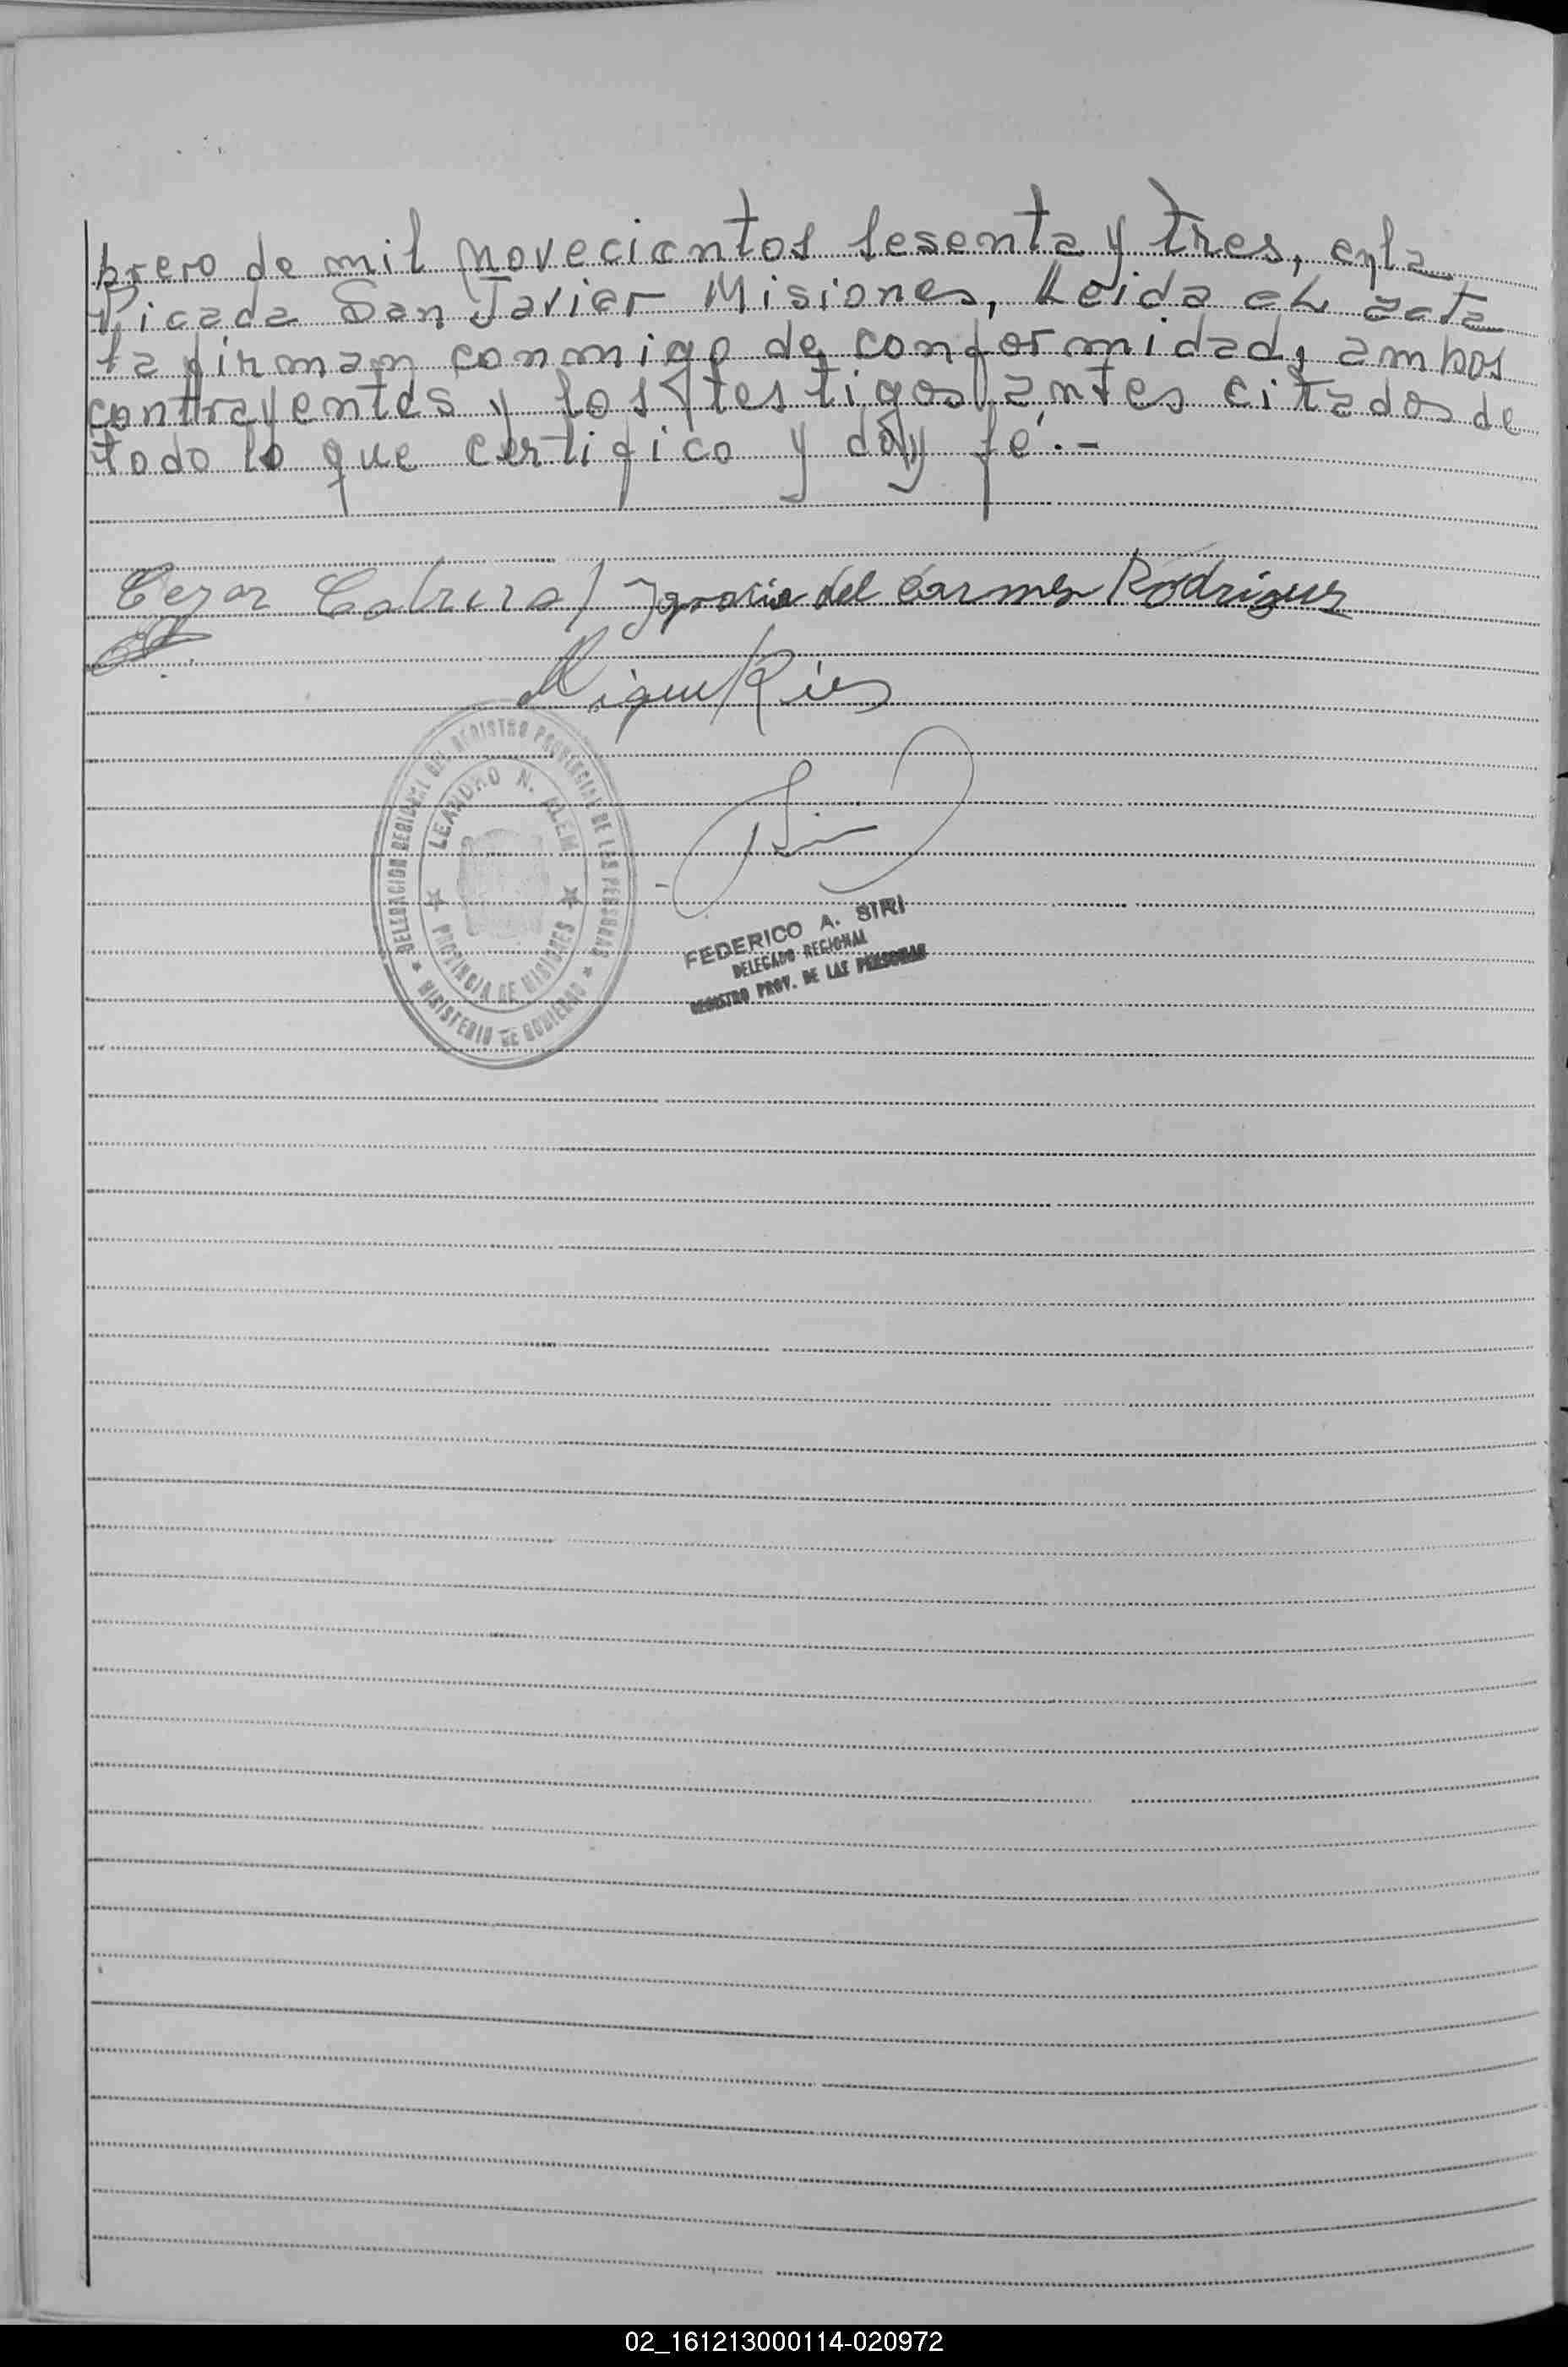 brero de mil novecientos sesenta y tres, en la
Picada San Javier Misiones, Leida el acta
la firman conmigo de conformidad, ambos
contrayentes y los testigos antes citados de
todo lo que certifico y doy fé.-
Cezar Cabrera / Ignacia del Carmen Rodriguez
Miguel Ries
DELEGACION REGIONAL DEL REGISTRO PROVINCIAL DE LAS PERSONAS
LEANDRO N. ALEM
PROVINCIA DE MISIONES
MINISTERIO DE GOBIERNO
FEDERICO A. SIRI
DELEGADO REGIONAL
REGISTRO PROV. DE LAS PERSONAS
02_161213000114-020972